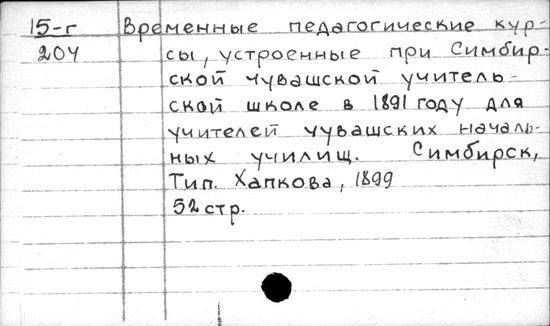 15-г Временные педагогические кур-
204 сы, устроенные при Симбир-
ской чувашской учитель-
ской школе в 1891 году для
учителей чувашских началь-
ных училищ. Симбирск,
Тип. Хапкова, 1899
52 стр.